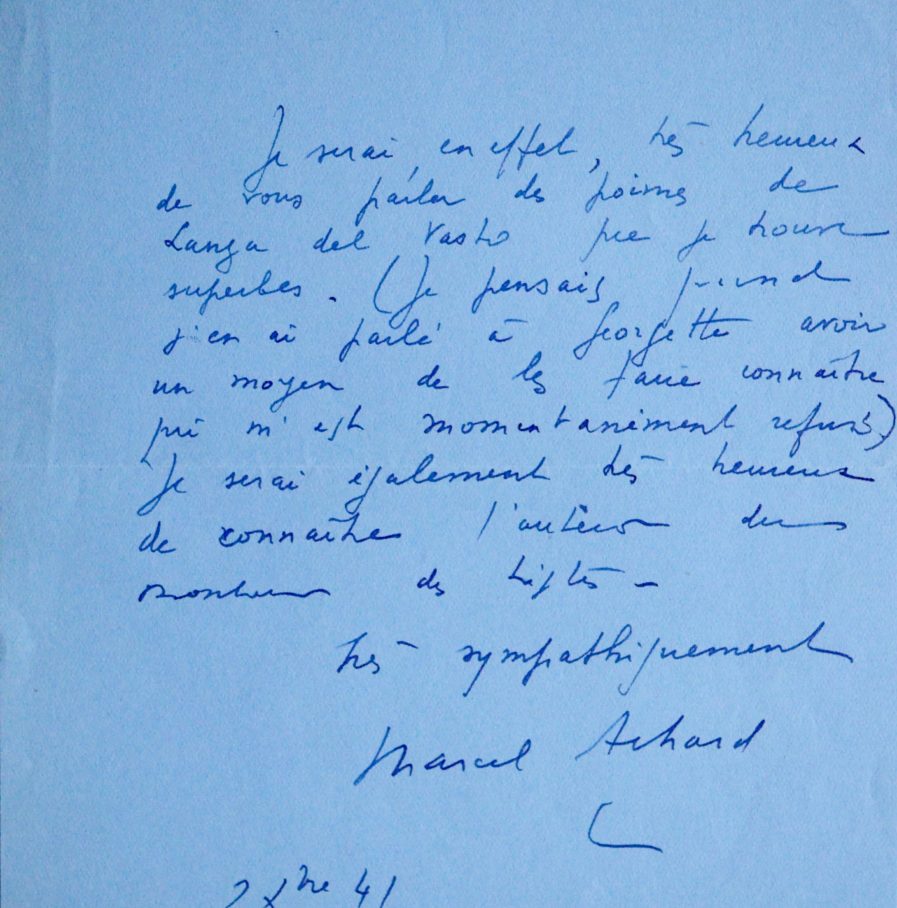 Je serai, en effet, très heureux
de vous parler des poèmes de
Lanza del Vasto que je trouve
superbes. (Je pensais quand
j'en ai parlé à Georgette avoir
un moyen de les faire connaître
qui m'est momentanément refusé)
Je serai également très heureux
de connaître l'auteur du
bonheur des tristes -
très sympathiquement
Marcel Achard
Xbre 41